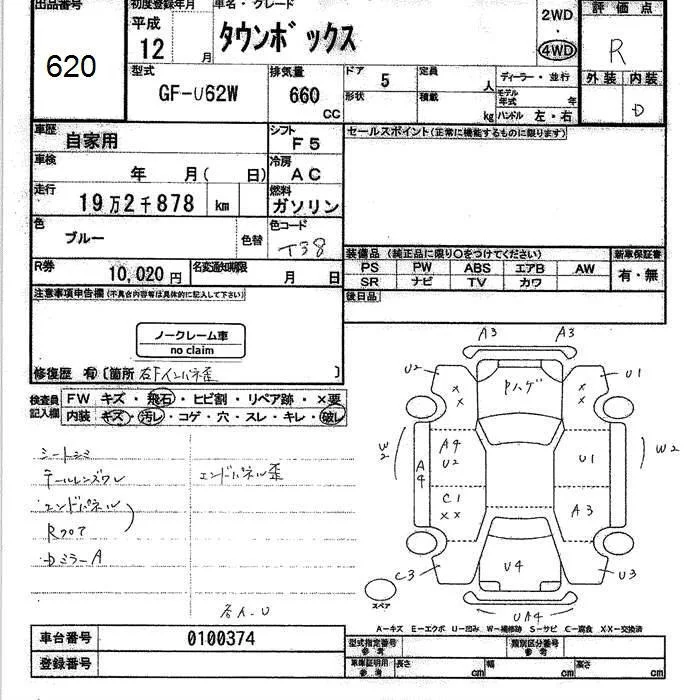 出品番号 初度登録年月 車名・グレード 評価点
620 平成 12 月 タウンボックス 2WD ・ 4WD R
型式 GF-U62W 排気量 660 CC
ドア 5 定員 人 ディーラー・並行 外装 内装
形状 積載 kg モデル年式 年 ハンドル 左・右 D
車歴 自家用 シフト F5 セールスポイント(正常に機能するものに限ります)
車検 年 月( 日) 冷房 AC
走行 19万2千878 km 燃料 ガソリン
色 ブルー 色替 色コード T38
装備品 (純正品に限り○をつけてください) 新車保証書
PS PW ABS エアB AW 有・無
SR ナビ TV カワ
R券 10,020円 名変通知期限 月 日
後日品
注意事項申告欄(不具合内容等は具体的に記入して下さい)
ノークレーム車
no claim
修復歴 有 〔箇所 右Fインパネ歪 〕
検査員記入欄 FW キズ・飛石・ヒビ割・リペア跡・×要
内装 キズ・汚レ・コゲ・穴・スレ・キレ・破レ
シートシミ
テールレンズワレ エンドパネル歪
エンドパネル
Rフロア
DミラーA
右人-U
A3 A3
U2 U1
×× Pハゲ ××
W2 A4 A4 U2 U1 W2
C1 ×× A3
C3 U4 U3
スペア UA4
A-キズ E-エクボ U-凹み W-補修跡 S-サビ C-腐食 XX-交換済
車台番号 0100374 型式指定番号 参考 類別区分番号 参考
登録番号 車庫証明用 参考 長さ cm 幅 cm 高さ cm